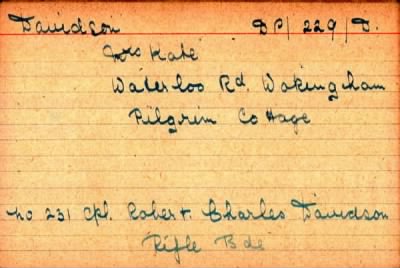 Davidson DP/229/D.
Mrs Kate
Waterloo Rd. Wokingham
Pilgrim Cottage
No 231 Cpl. Robert Charles Davidson
Rifle Bde